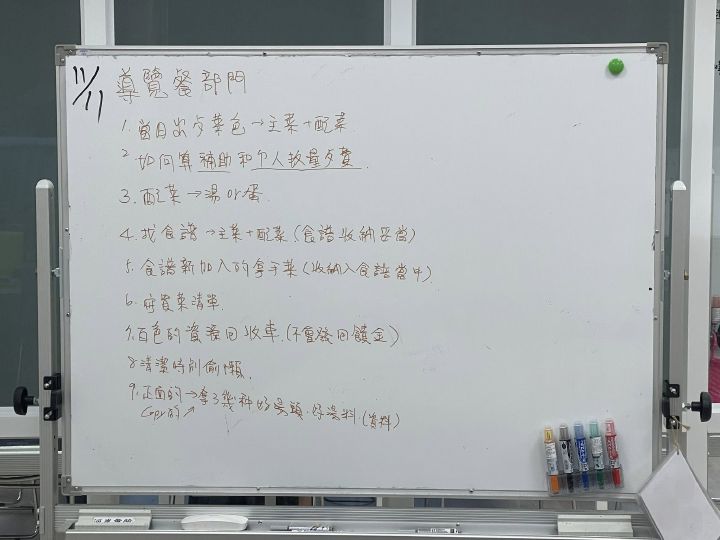 11/11 導覽餐部門
1. 當日出步菜色→主菜+配菜
2. 如何算補助和个人数量多費
3. 配菜→湯or蛋
4. 找食譜→主菜+配菜(食譜收納妥當)
5. 食譜新加入的拿手菜(收納入食譜當中)
6. 買菜清單
7. 百色的資源回收車(不會發回饋金)
8. 清潔時別偷懶
9. 正面的→拿了幾种好湯頭.好湯料(資料)
Copy的↗